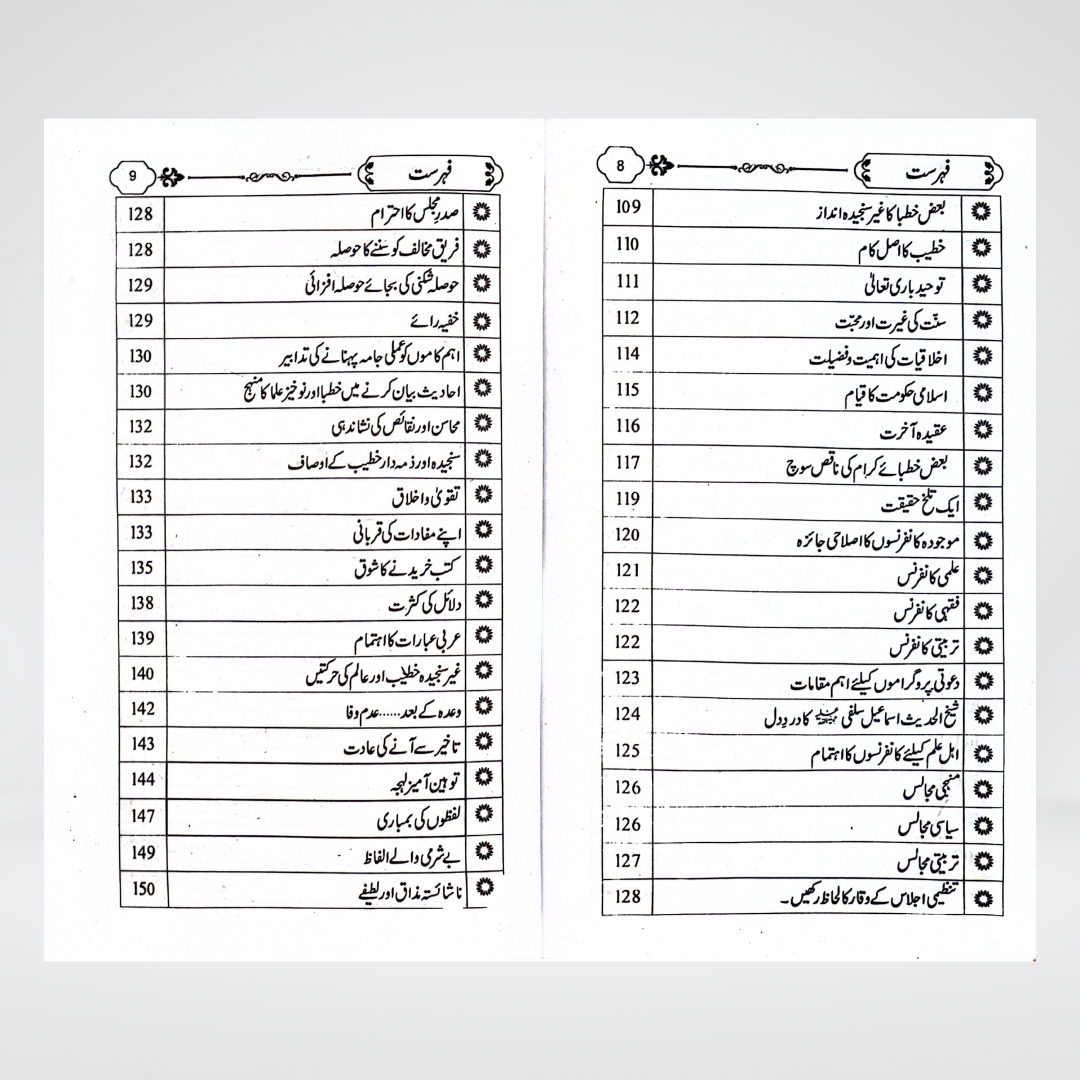 فہرست 8
بعض خطبا کا غیر سنجیدہ انداز 109
خطیب کا اصل کام 110
توحید باری تعالیٰ 111
سنّت کی غیرت اور محبّت 112
اخلاقیات کی اہمیت و فضیلت 114
اسلامی حکومت کا قیام 115
عقیدہ آخرت 116
بعض خطبائے کرام کی ناقص سوچ 117
ایک تلخ حقیقت 119
موجودہ کانفرنسوں کا اصلاحی جائزہ 120
علمی کانفرنس 121
فقہی کانفرنس 122
تربیتی کانفرنس 122
دعوتی پروگراموں کیلئے اہم مقامات 123
شیخ الحدیث اسماعیل سلفی رحمہ اللہ کا دردِ دل 124
اہل علم کیلئے کانفرنسوں کا اہتمام 125
منہجی مجالس 126
سیاسی مجالس 126
تربیتی مجالس 127
تنظیمی اجلاس کے وقار کا لحاظ رکھیں۔ 128
فہرست 9
صدرِ مجلس کا احترام 128
فریق مخالف کو سننے کا حوصلہ 128
حوصلہ شکنی کی بجائے حوصلہ افزائی 129
خفیہ رائے 129
اہم کاموں کو عملی جامہ پہنانے کی تدابیر 130
احادیث بیان کرنے میں خطبا اور نوخیز علما کا منہج 130
محاسن اور نقائص کی نشاندہی 132
سنجیدہ اور ذمہ دار خطیب کے اوصاف 132
تقویٰ و اخلاق 133
اپنے مفادات کی قربانی 133
کتب خریدنے کا شوق 135
دلائل کی کثرت 138
عربی عبارات کا اہتمام 139
غیر سنجیدہ خطیب اور عالم کی حرکتیں 140
وعدہ کے بعد......عدم وفا 142
تاخیر سے آنے کی عادت 143
توہین آمیز لہجہ 144
لفظوں کی بمباری 147
بے شرمی والے الفاظ 149
ناشائستہ مذاق اور لطیفے 150